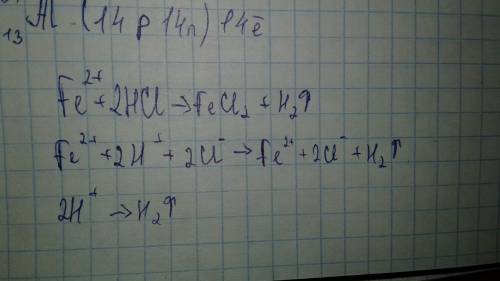 ₁₃Al (14p 14n) 14ē
Fe²⁺ + 2HCl → FeCl₂ + H₂↑
Fe²⁺ + 2H⁺ + 2Cl⁻ → Fe²⁺ + 2Cl⁻ + H₂↑
2H⁺ → H₂↑